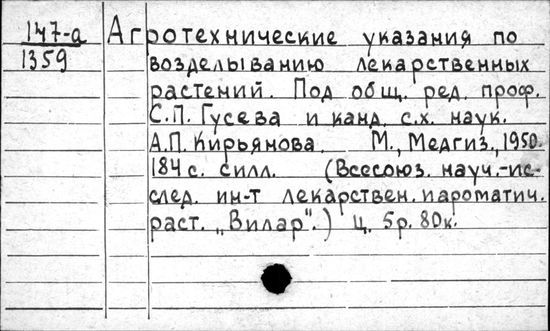 147-а
1359
Агротехнические указания по
возделыванию лекарственных
растений. Под общ. ред. проф.
С.П. Гусева и канд. с.х. наук.
А.П. Кирьянова. М., Медгиз, 1950.
184 с. силл. (Всесоюз. науч.-ис-
след. ин-т лекарствен. иароматич.
раст. „Вилар".) ц. 5р. 80к.